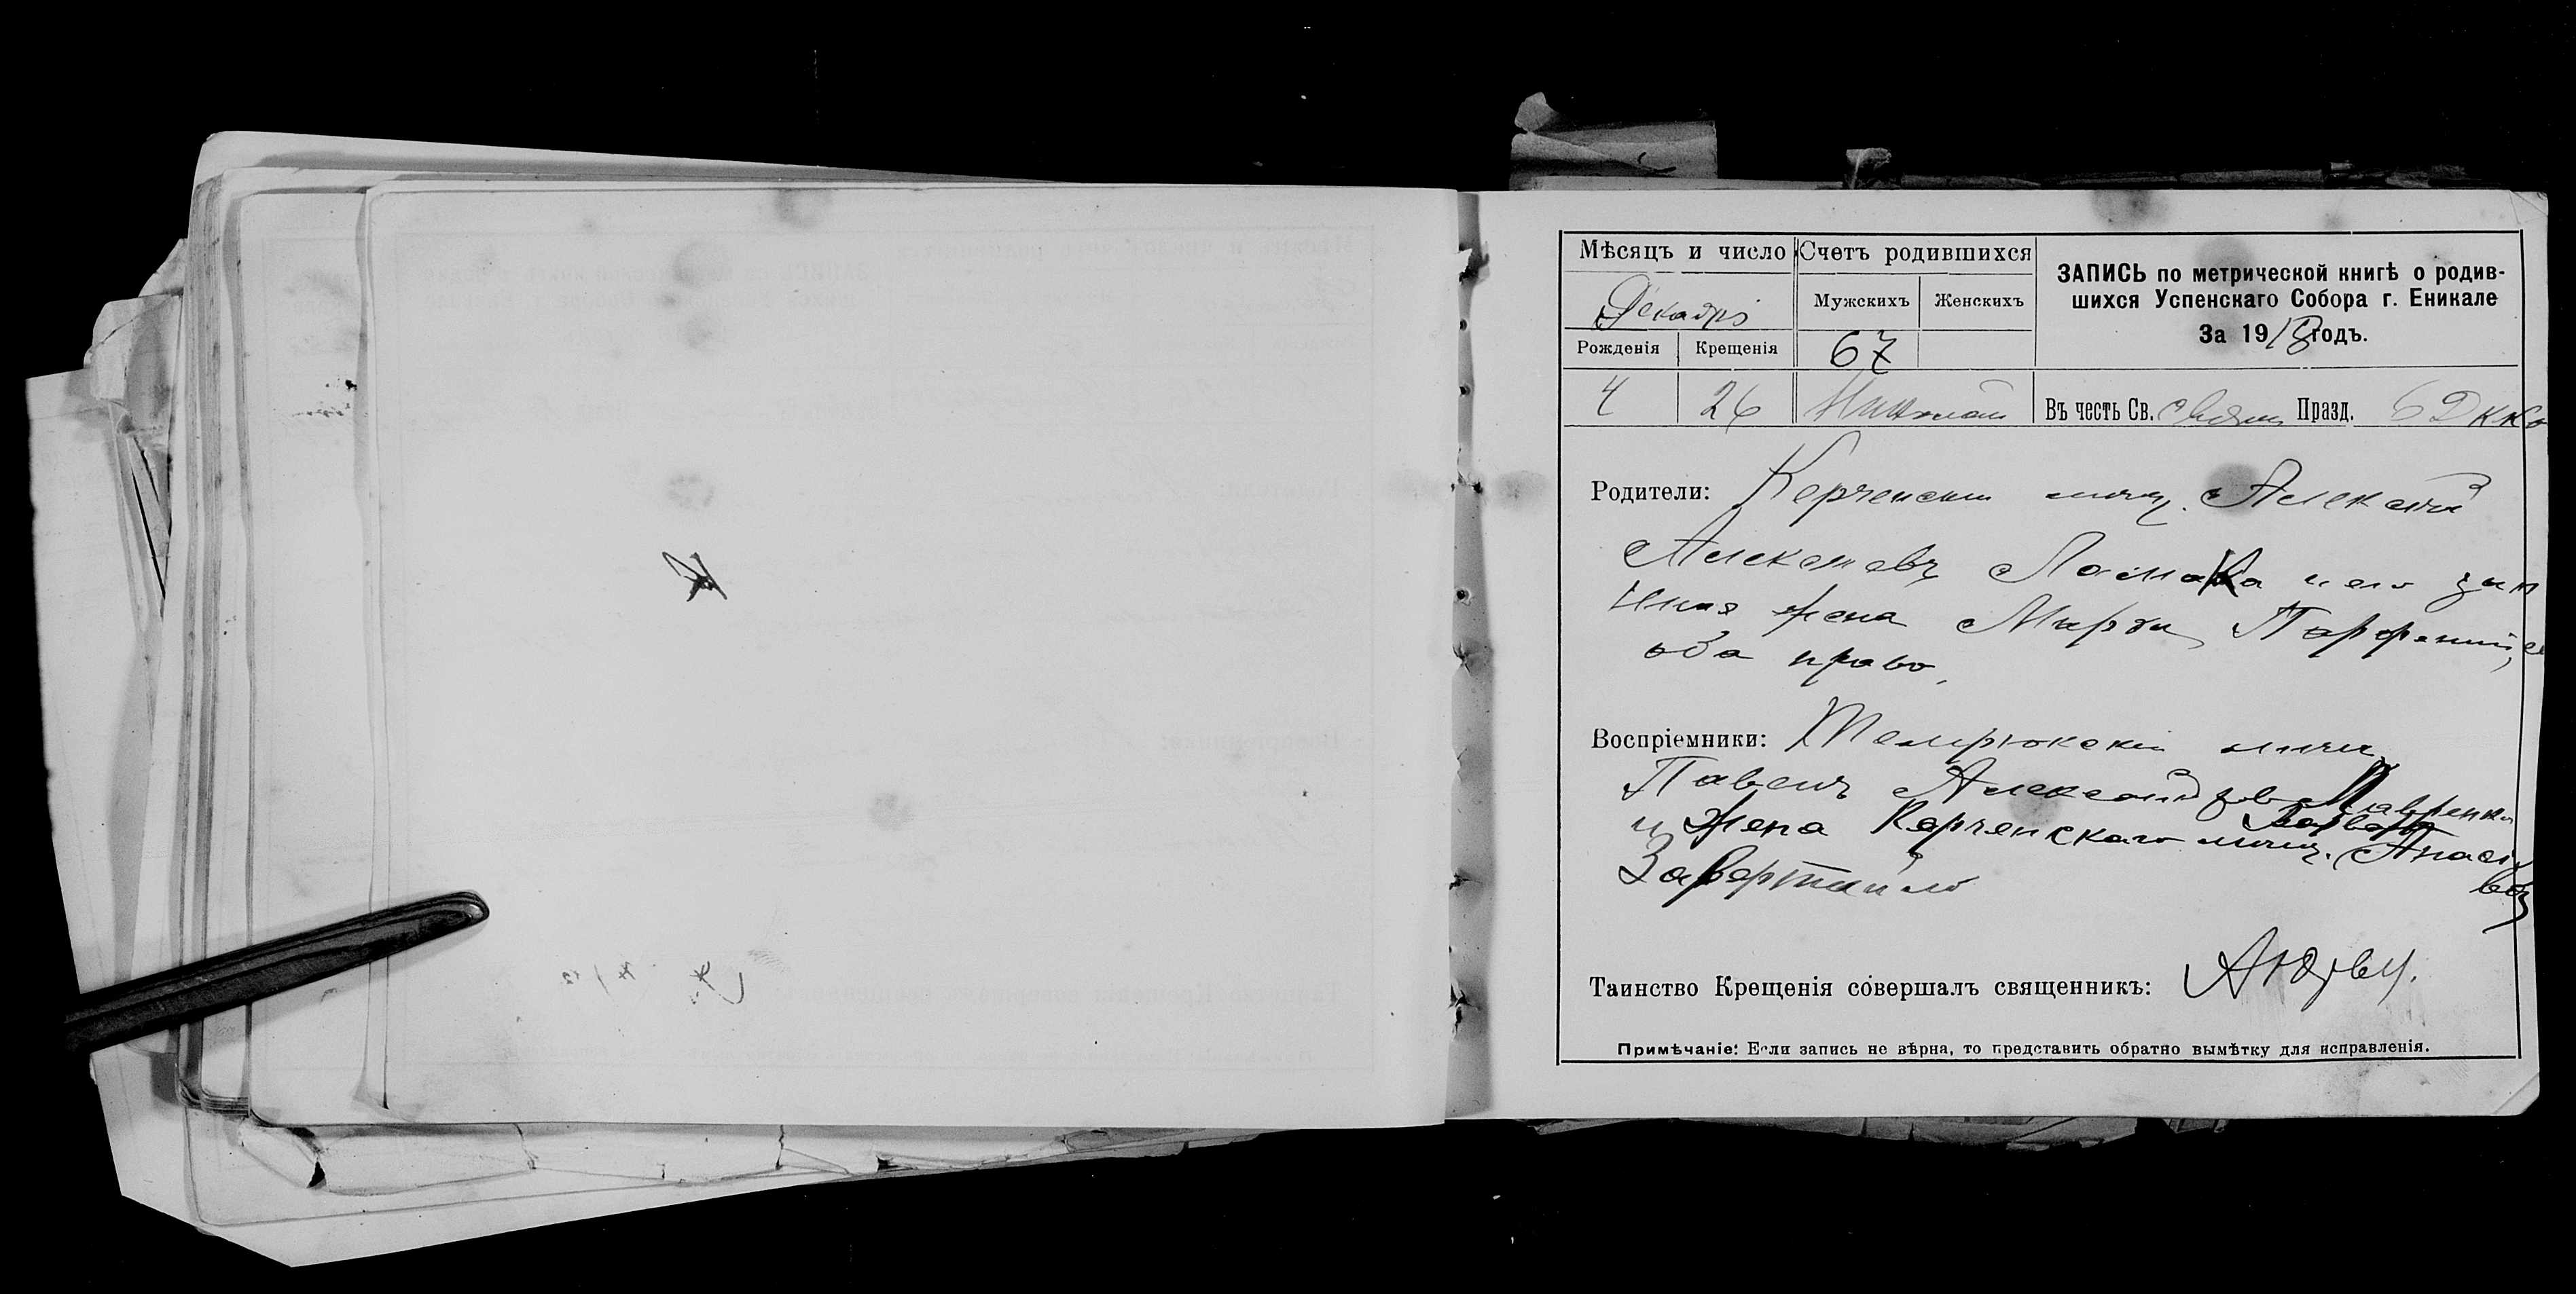 Мѣсяцъ и число
Счетъ родившихся
ЗАПИСЬ по метрической книгѣ о родив-
шихся Успенскаго Собора г. Еникале
За 1918 годъ.
Декабрь
Мужскихъ
Женскихъ
Рожденія
Крещенія
67
4
26
Николай
Въ честь Св.
Празд.
6 Дек
Родители: Керченскій мѣщ. Алексѣй
Алексѣевъ Ломака и его закон
ная жена Марфа Парфеніев
оба право.
Воспріемники: Темрюкскій мѣщ
Павелъ Александровъ Лавренко
и жена Керченскаго мѣщ.
Завертайло
Таинство Крещенія совершалъ священникъ:
Примѣчаніе: Если запись не вѣрна, то представить обратно вымѣтку для исправленія.